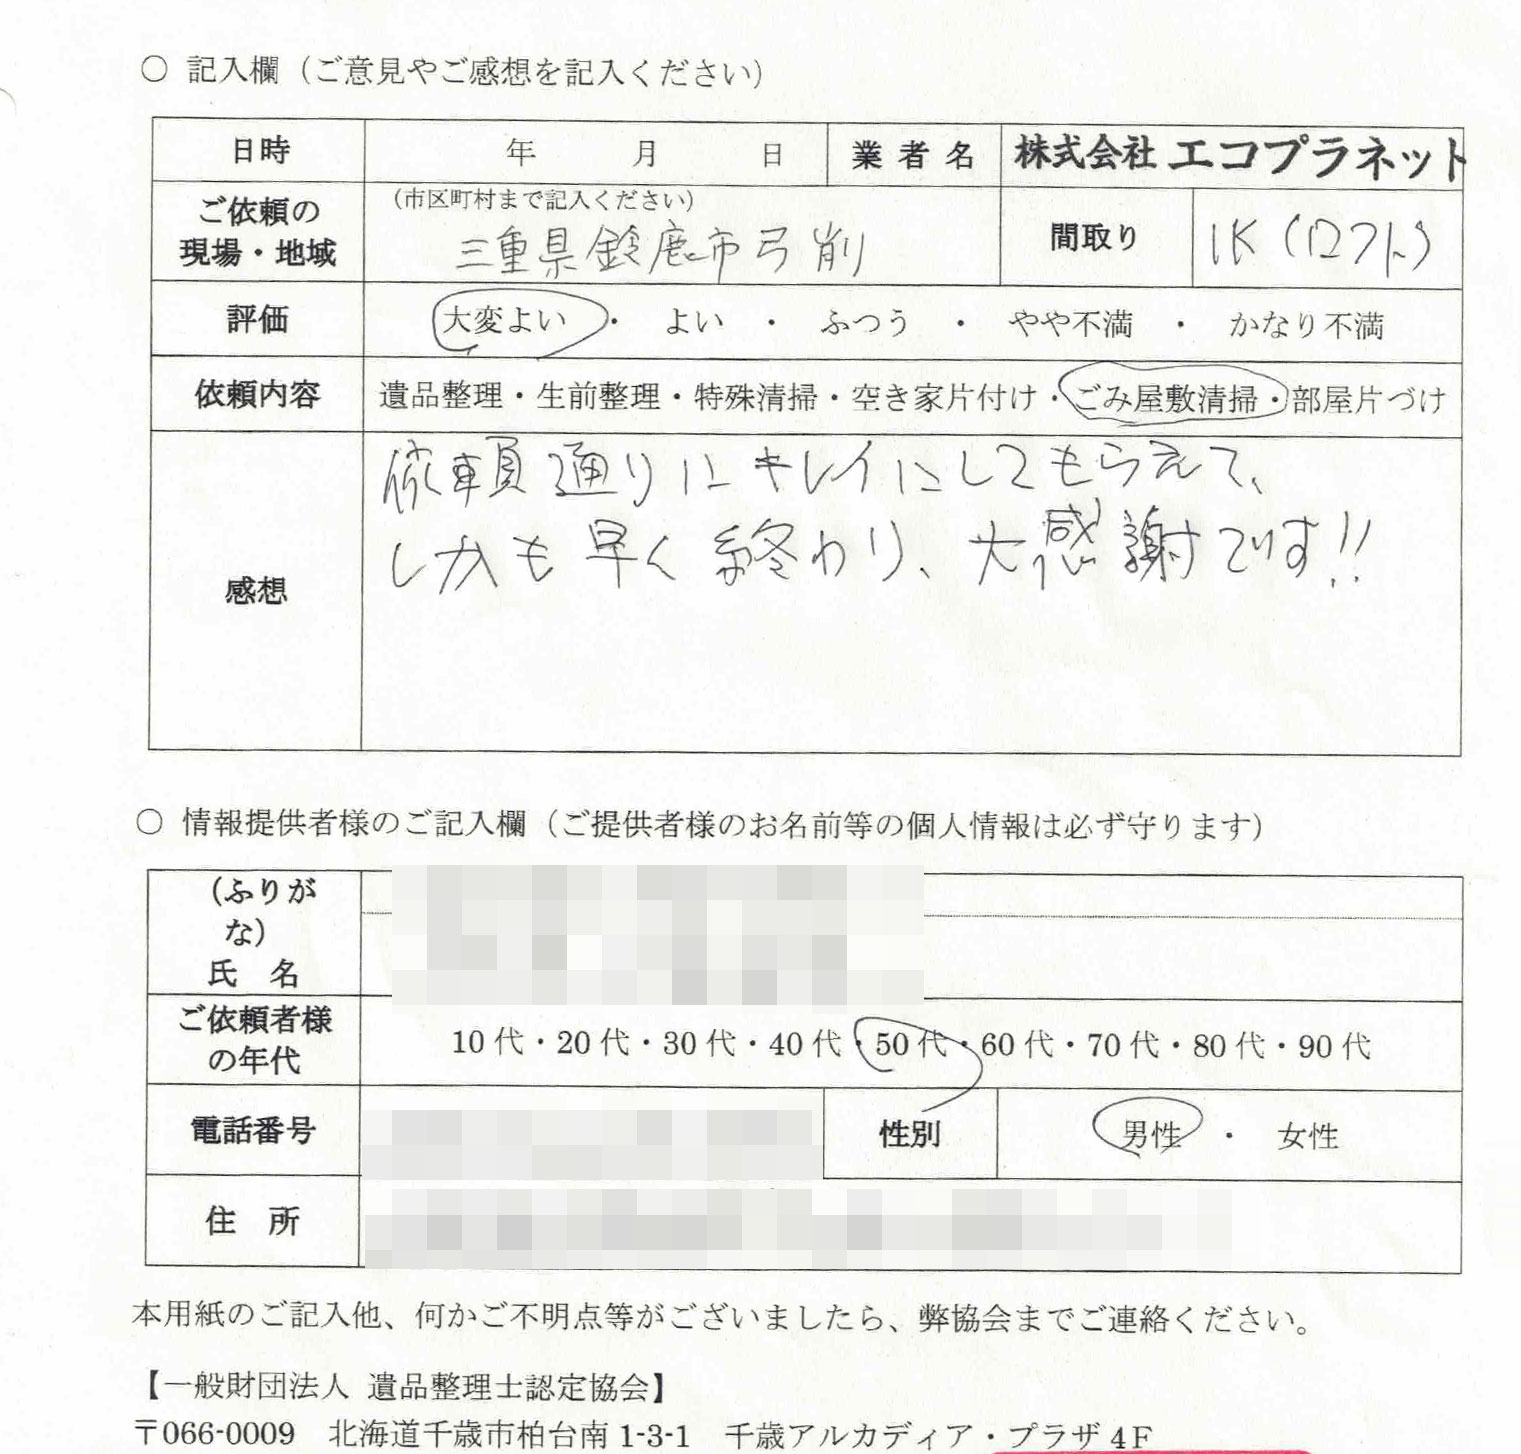 ○ 記入欄（ご意見やご感想を記入ください）
日時 年 月 日 業者名 株式会社 エコプラネット
ご依頼の
現場・地域
（市区町村まで記入ください）
三重県鈴鹿市弓削
間取り 1K（ロフト）
評価 大変よい ・ よい ・ ふつう ・ やや不満 ・ かなり不満
依頼内容 遺品整理・生前整理・特殊清掃・空き家片付け・ごみ屋敷清掃・部屋片づけ
感想
依頼通りにキレイにしてもらえて、
しかも早く終わり、大感謝です!!
○ 情報提供者様のご記入欄（ご提供者様のお名前等の個人情報は必ず守ります）
（ふりが
な）
氏 名
ご依頼者様
の年代
10代・20代・30代・40代・50代・60代・70代・80代・90代
電話番号 性別 男性 ・ 女性
住 所
本用紙のご記入他、何かご不明点等がございましたら、弊協会までご連絡ください。
【一般財団法人 遺品整理士認定協会】
〒066-0009 北海道千歳市柏台南1-3-1 千歳アルカディア・プラザ4F